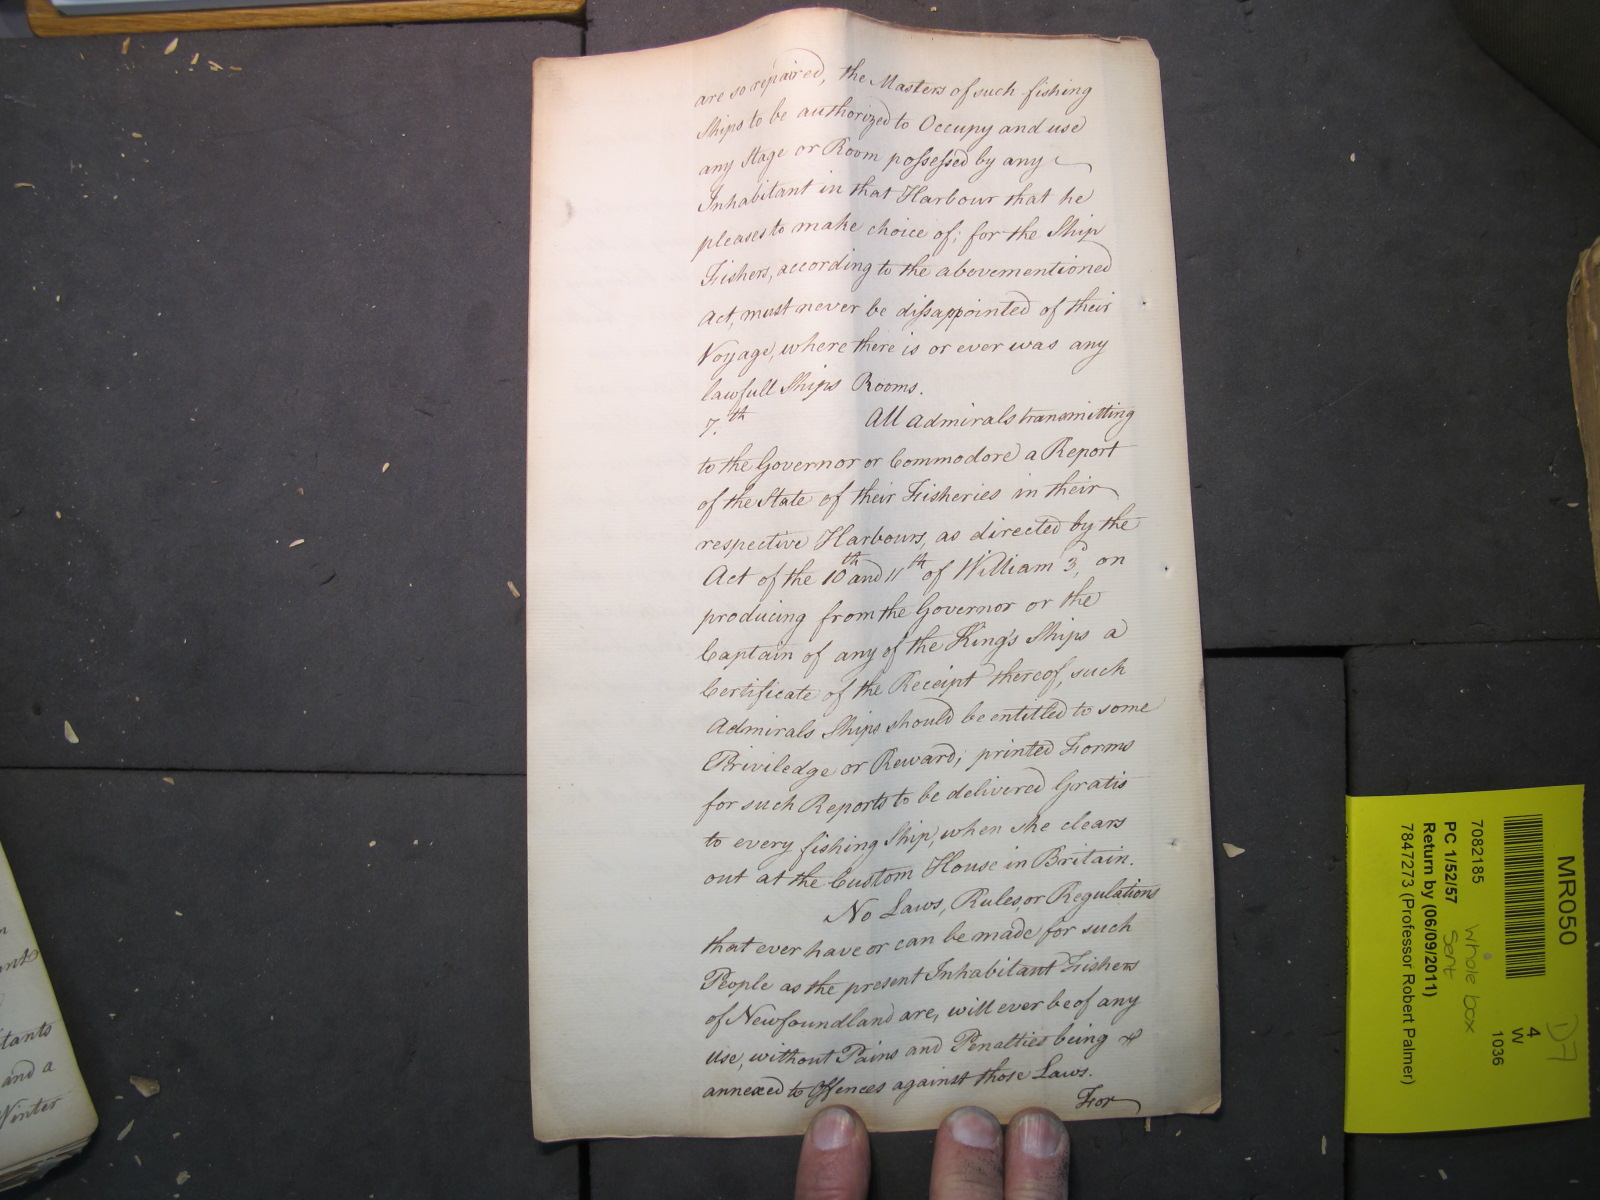 are so repaired, the Masters of such fishing
Ships to be authorized to Occupy and use
any Stage or Room possessed by any
Inhabitant in that Harbour that he
pleases to make choice of; for the Ship
Fishers, according to the abovementioned
Act, must never be dissappointed of their
Voyage, where there is or ever was any
lawfull Ships Rooms.
7.th All Admirals transmitting
to the Governor or Commodore a Report
of the State of their Fisheries in their
respective Harbours, as directed by the
Act of the 10th and 11th of William 3d, on
producing from the Governor or the
Captain of any of the King's Ships a
Certificate of the Receipt thereof, such
Admirals Ships should be entitled to some
Priviledge or Reward; printed Forms
for such Reports to be delivered Gratis
to every fishing Ship, when she clears
out at the Custom House in Britain.
No Laws, Rules, or Regulations
that ever have or can be made for such
People as the present Inhabitant Fishers
of Newfoundland are, will ever be of any
use, without Pains and Penalties being
annexed to Offences against those Laws.
For
tants
and a
Winter
MR050
7082185
PC 1/52/57
Return by (06/09/2011)
7847273 (Professor Robert Palmer)
whole box
Sent
4
W
1036
D7